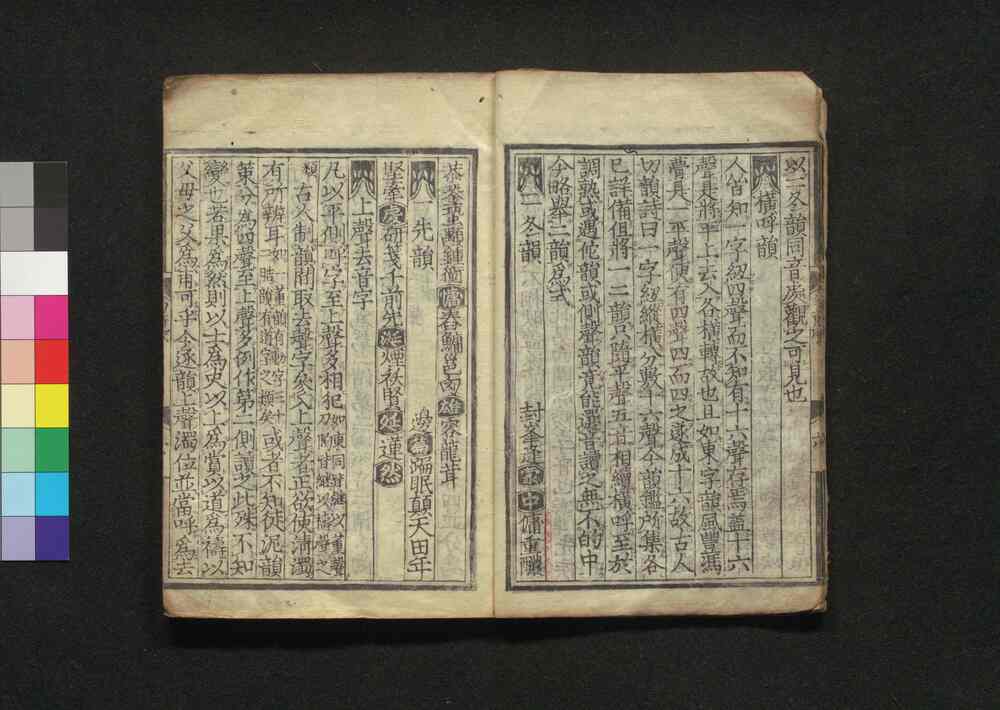 以二冬韻同音處觀之可見也
橫呼韻
人皆知一字紐四聲而不知有十六聲存焉蓋十六
聲是將平上去入各橫轉故也且如東字韻風豐馮
瞢是一平聲便有四聲四而四之遂成十六故古人
切韻詩曰一字紐縱橫分敷十六聲今韻鑑所集各
已詳備但將一二韻只隨平聲五音相續橫呼至於
調熟或遇佗韻或側聲韻竟能選音讀之無不的中
今略舉二韻為式
二冬韻 封峯逢 中傭重醲
恭蛩顒鍾衝 舂鱅邕匈 容龍茸
一先韻 邊 蹁眠顛天田年
堅牽 研箋千前先 煙祆賢 蓮然
上聲去音字
凡以平側呼字至上聲多相犯
古人制韻間取去聲字參入上聲者正欲使清濁
有所辨耳 或者不知徒泥韻
策分為四聲至上聲多例作第二側讀之此殊不知
變也若果為然則以士為史以上為賞以道為禱以
父母之父為甫可乎今逐韻上聲濁位並當呼為去